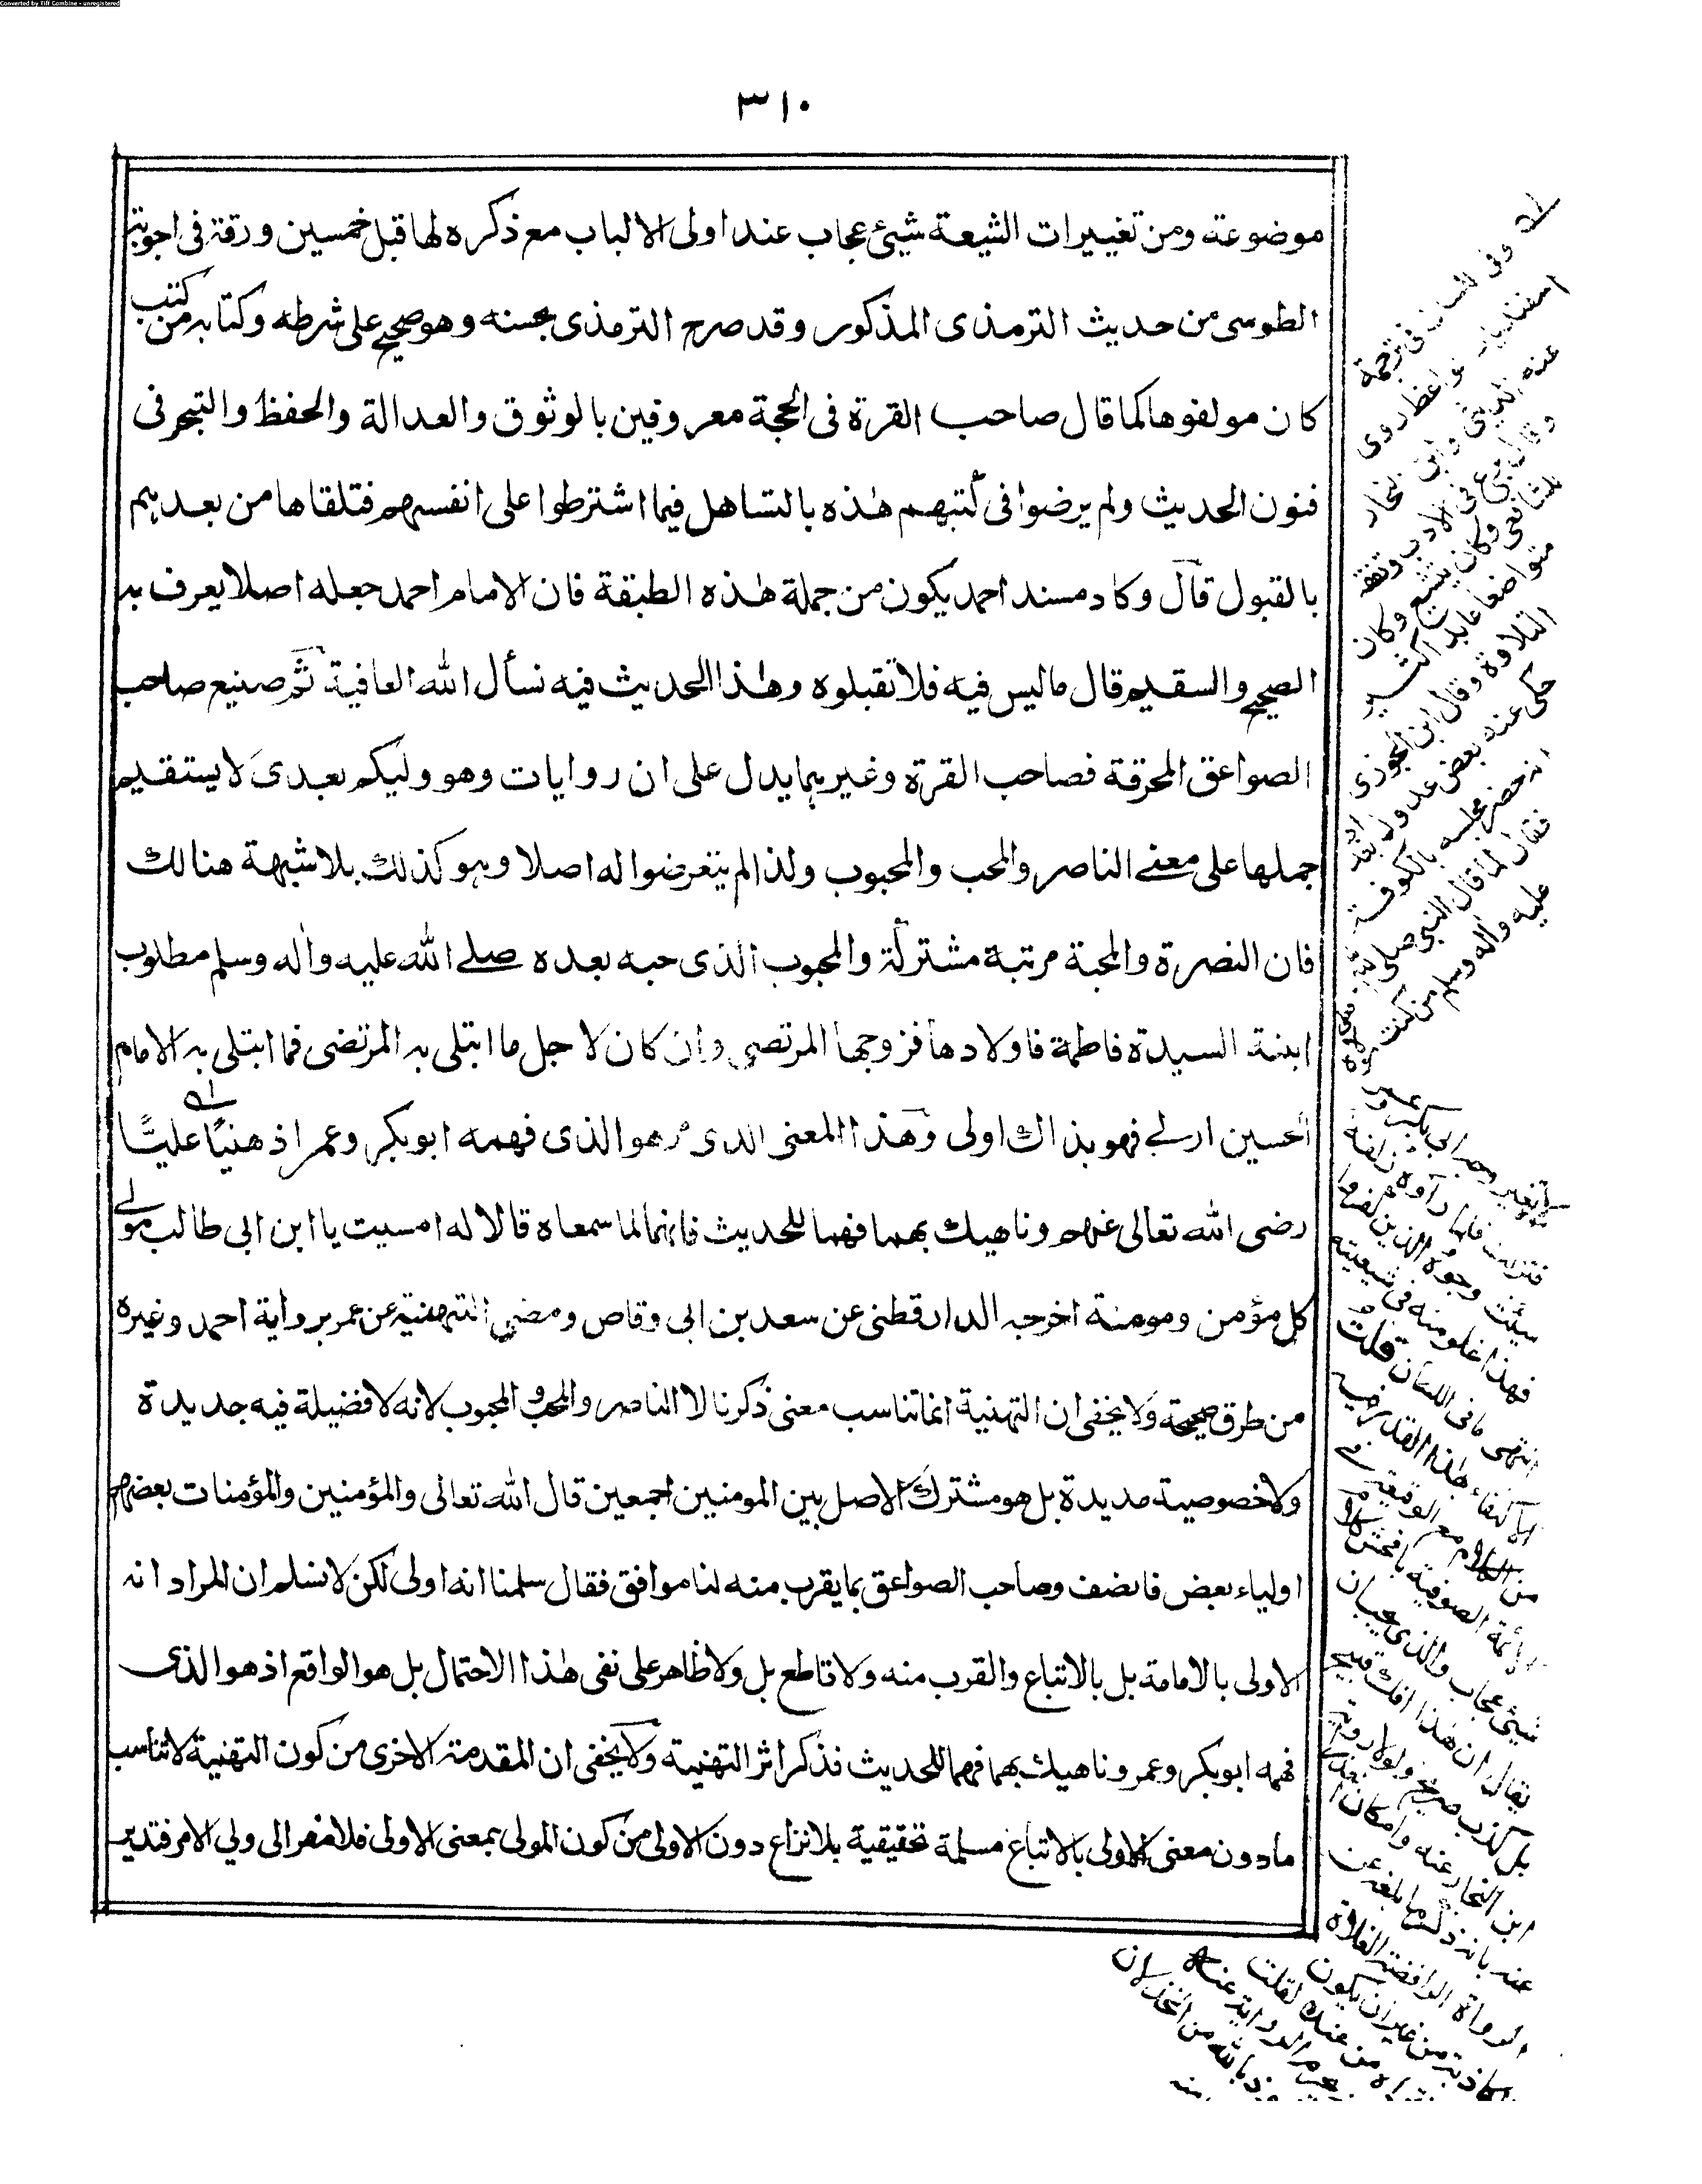 Converted by Tiff Combine - unregistered
٣١٠
موضوعة ومن تغييرات الشيعة شيئ عجاب عند اولى الالباب مع ذكره لها قبل خمسين ورقة فى اجوبة
الطوسى من حديث الترمذى المذكور وقد صرح الترمذى بحسنه وهو صحيح على شرطه وكتابه من كتب
كان مولفوها كما قال صاحب القرة فى الحجة معروفين بالوثوق والعدالة والحفظ والتبحر فى
فنون الحديث ولم يرضوا فى كتبهم هذه بالتساهل فيما اشترطوا على انفسهم فتلقاها من بعدهم
بالقبول قال وكاد مسند احمد يكون من جملة هذه الطبقة فان الامام احمد جعله اصلا يعرف به
الصحيح والسقيم قال ماليس فيه فلا تقبلوه وهذا الحديث فيه نسأل الله العافية ثم صنيع صاحب
الصواعق المحرقة فصاحب القرة وغيرهما يدل على ان روايات وهو وليكم بعدى لا يستقيم
حملها على معنى الناصر والمحب والمحبوب ولذا لم يتعرضوا له اصلا وهو كذلك بلا شبهة هنالك
فان النصرة والمحبة مرتبة مشتركة والمحبوب الذى حبه بعده صلى الله عليه واله وسلم مطلوب
ابنة السيدة فاطمة فاولادها فزوجها المرتضى وان كان لاجل ما ابتلى به المرتضى فما ابتلى به الامام
الحسين ارلى فهو بذاك اولى وهذا المعنى الذى هو الذى فهمه ابوبكر وعمر اذ هنيا عليا
رضى الله تعالى عنهم وناهيك بهما فهما للحديث فانهما لما سمعاه قالا له امسيت يا ابن ابى طالب مولى
كل مؤمن ومومنة اخرجه الدارقطنى عن سعد بن ابى وقاص ومضى التهنية عن عمر برواية احمد وغيره
من طرق صحيحة ولا يخفى ان التهنية انما تناسب معنى ذكرنا لا الناصر والمحب و المحبوب لانه لا فضيلة فيه جديدة
ولا خصوصية مديدة بل هو مشترك الاصل بين المومنين اجمعين قال الله تعالى والمؤمنين والمؤمنات بعضهم
اولياء بعض فانصف وصاحب الصواعق بما يقرب منه لنا موافق فقال سلمنا انه اولى لكن لا نسلم ان المراد انه
الاولى بالامامة بل بالاتباع والقرب منه ولا قاطع بل ولا ظاهر على نفى هذا الاحتمال بل هو الواقع اذ هو الذى
فهمه ابوبكر وعمر وناهيك بهما فهما للحديث فذكر اثر التهنية ولا يخفى ان المقدمة الاخرى من كون التهنية لا تناسب
مادون معنى الاولى بالاتباع مسلمة تحقيقية بلا نزاع دون الاولى من كون المولى بمعنى الاولى فلا مفر الى ولي الامر فتدبر
وفى اللسان فى ترجمة
عنه
وقال
للشافعى وكان يتشيع وكان
متواضعا عابدا كثير
التلاوة وقال ابن الجوزى
حكى عنه بعض عدول بغداد
انه حضر مجلسه بالكوفة
فقال لما قال النبى صلى الله
عليه واله وسلم من كنت مولاه
تغير وجه ابى بكر وعمر
فنزلت فلما رأوه زلفة
سيئت وجوه الذين كفروا
فهذا غلو منه فى شيعيته
انتهى ما فى اللسان قلت
شيئ عجاب والذى
يقال ان هذا افك قبيح
بل كذب صريح
ابن النجار عنه وامكان
الرواة الرافضة الغلاة
منه